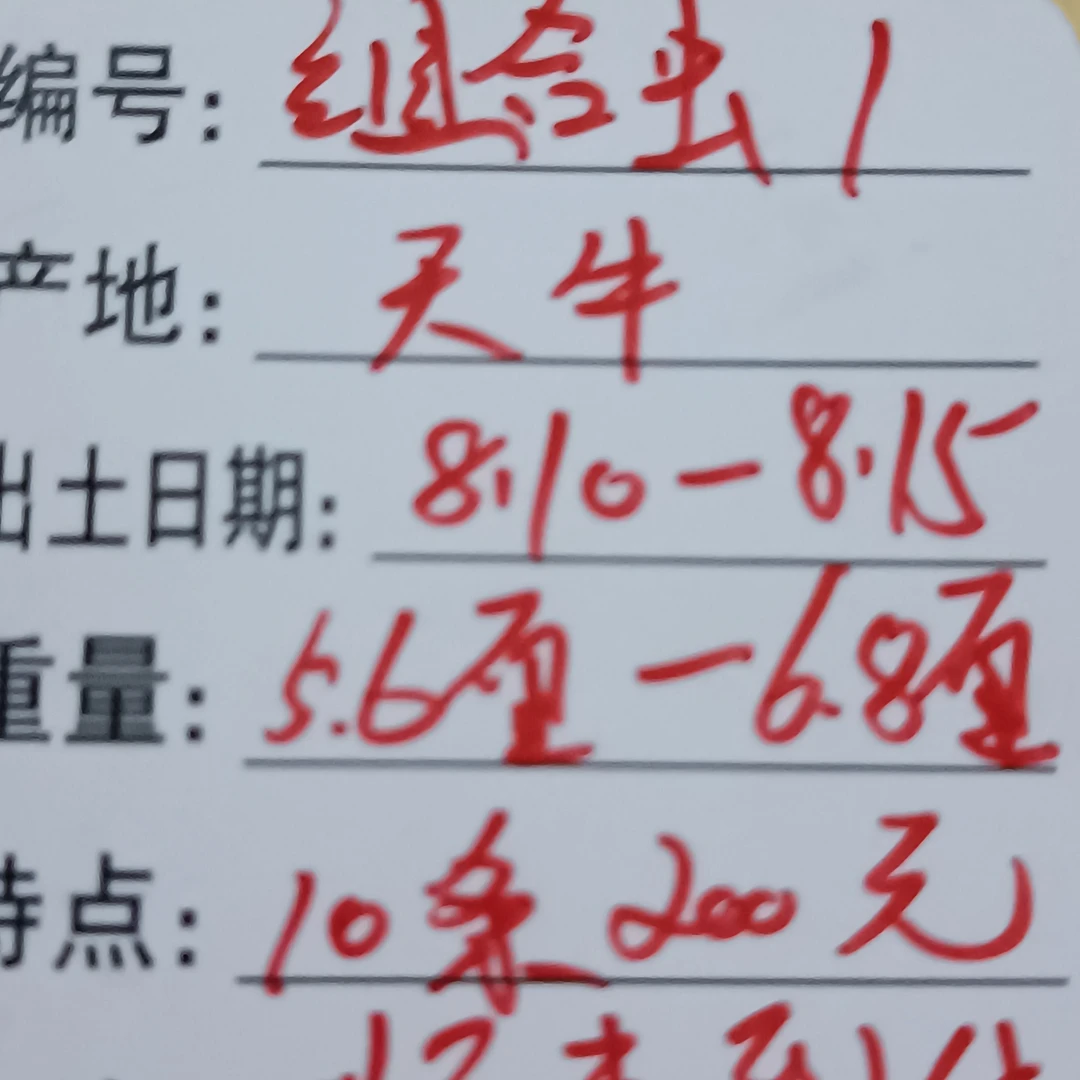 编号: 组合虫 1
产地: 天牛
出土日期: 8.10-8.15
重量: 5.6厘-6.8厘
特点: 10条200元